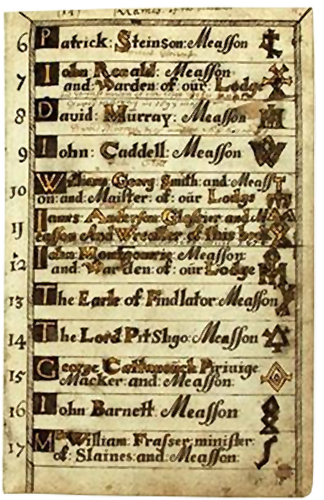 (14) Names of the
6 Patrick: Steinson: Measson
7 Iohn Ronald: Measson
and Warden of our: Lodge
8 David: Murray: Measson
9 Iohn: Caddell: Measson
10 William: Georg Smith: and: Meass
on: and Maister: of: our Lodge
11 Iames: Anderson: Glassier and Me
asson And Wreatter of this book
12 Iohn Montgomrie Measson:
and: Warden: of: our Lodge
13 The Earle of Findlator: Measson
14 The Lord Pitsligo: Measson
15 George Piriuige
Macker: and: Measson:
16 Iohn Barnett Measson
17 Mr William: Frasser: minister:
of: Slaines: and: Measson